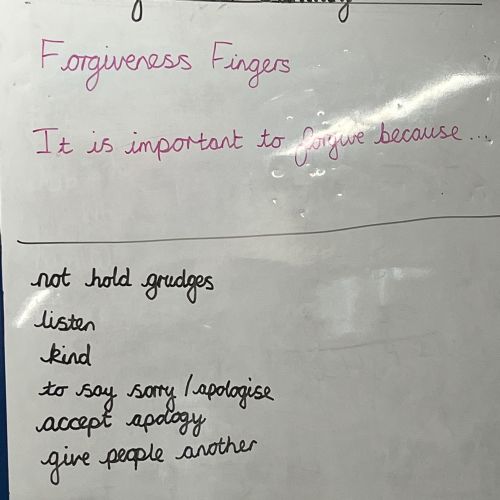 Forgiveness Fingers
It is important to forgive because...
not hold grudges
listen
kind
to say sorry / apologise
accept apology
give people another